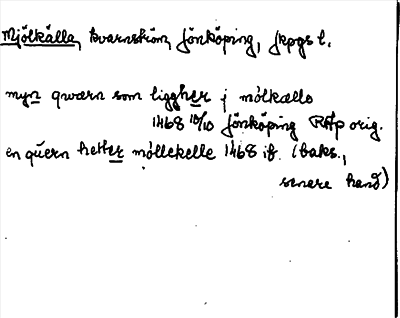 Mjölkälla, kvarnström, Jönköping, Jkpgs l.
myn qwærn som liggher j mölkællo
1468 10/10 Jönköping RAp orig.
en quern hetter möllekelle 1468 ib. (baks.,
senere hand)